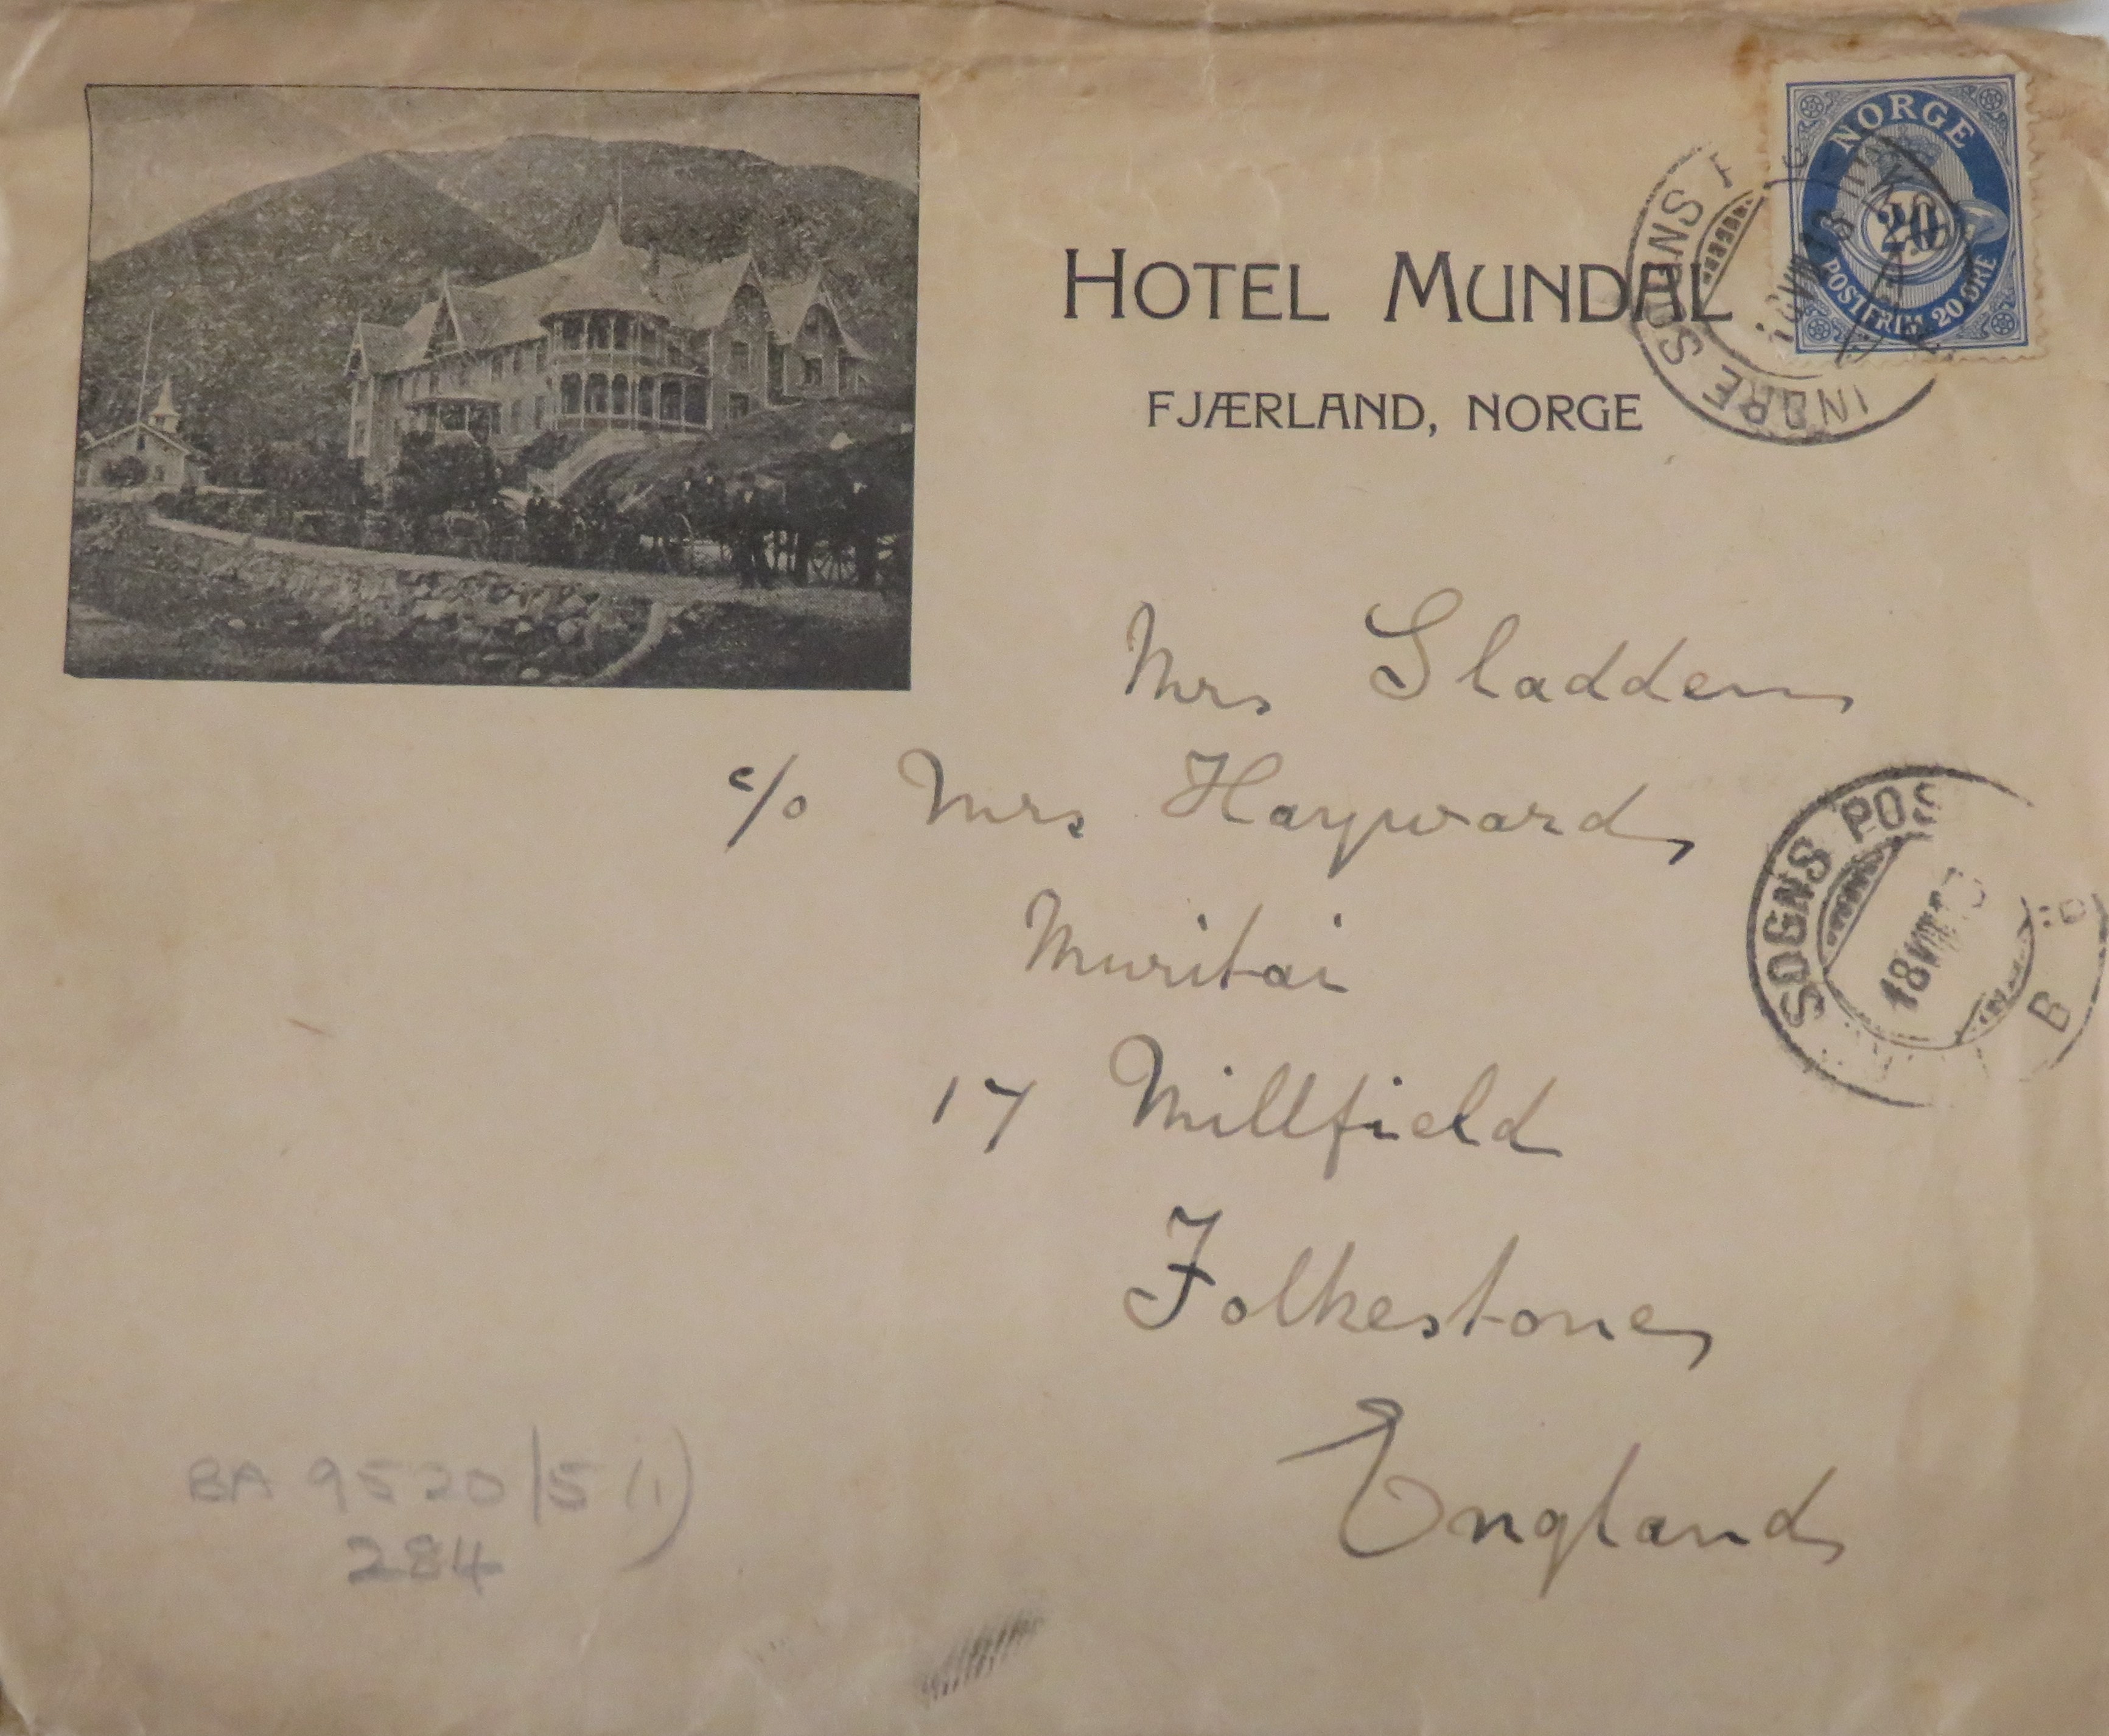 HOTEL MUNDAL
FJÆRLAND, NORGE
NORGE
20
POSTFRIM 20 ØRE
INDRE SOGNS
Mrs Sladden
c/o Mrs Hayward
Muritai
17 Millfield
Folkestone
England
SOGNS POS
B
18 VII
BA 9520/5(1)
284